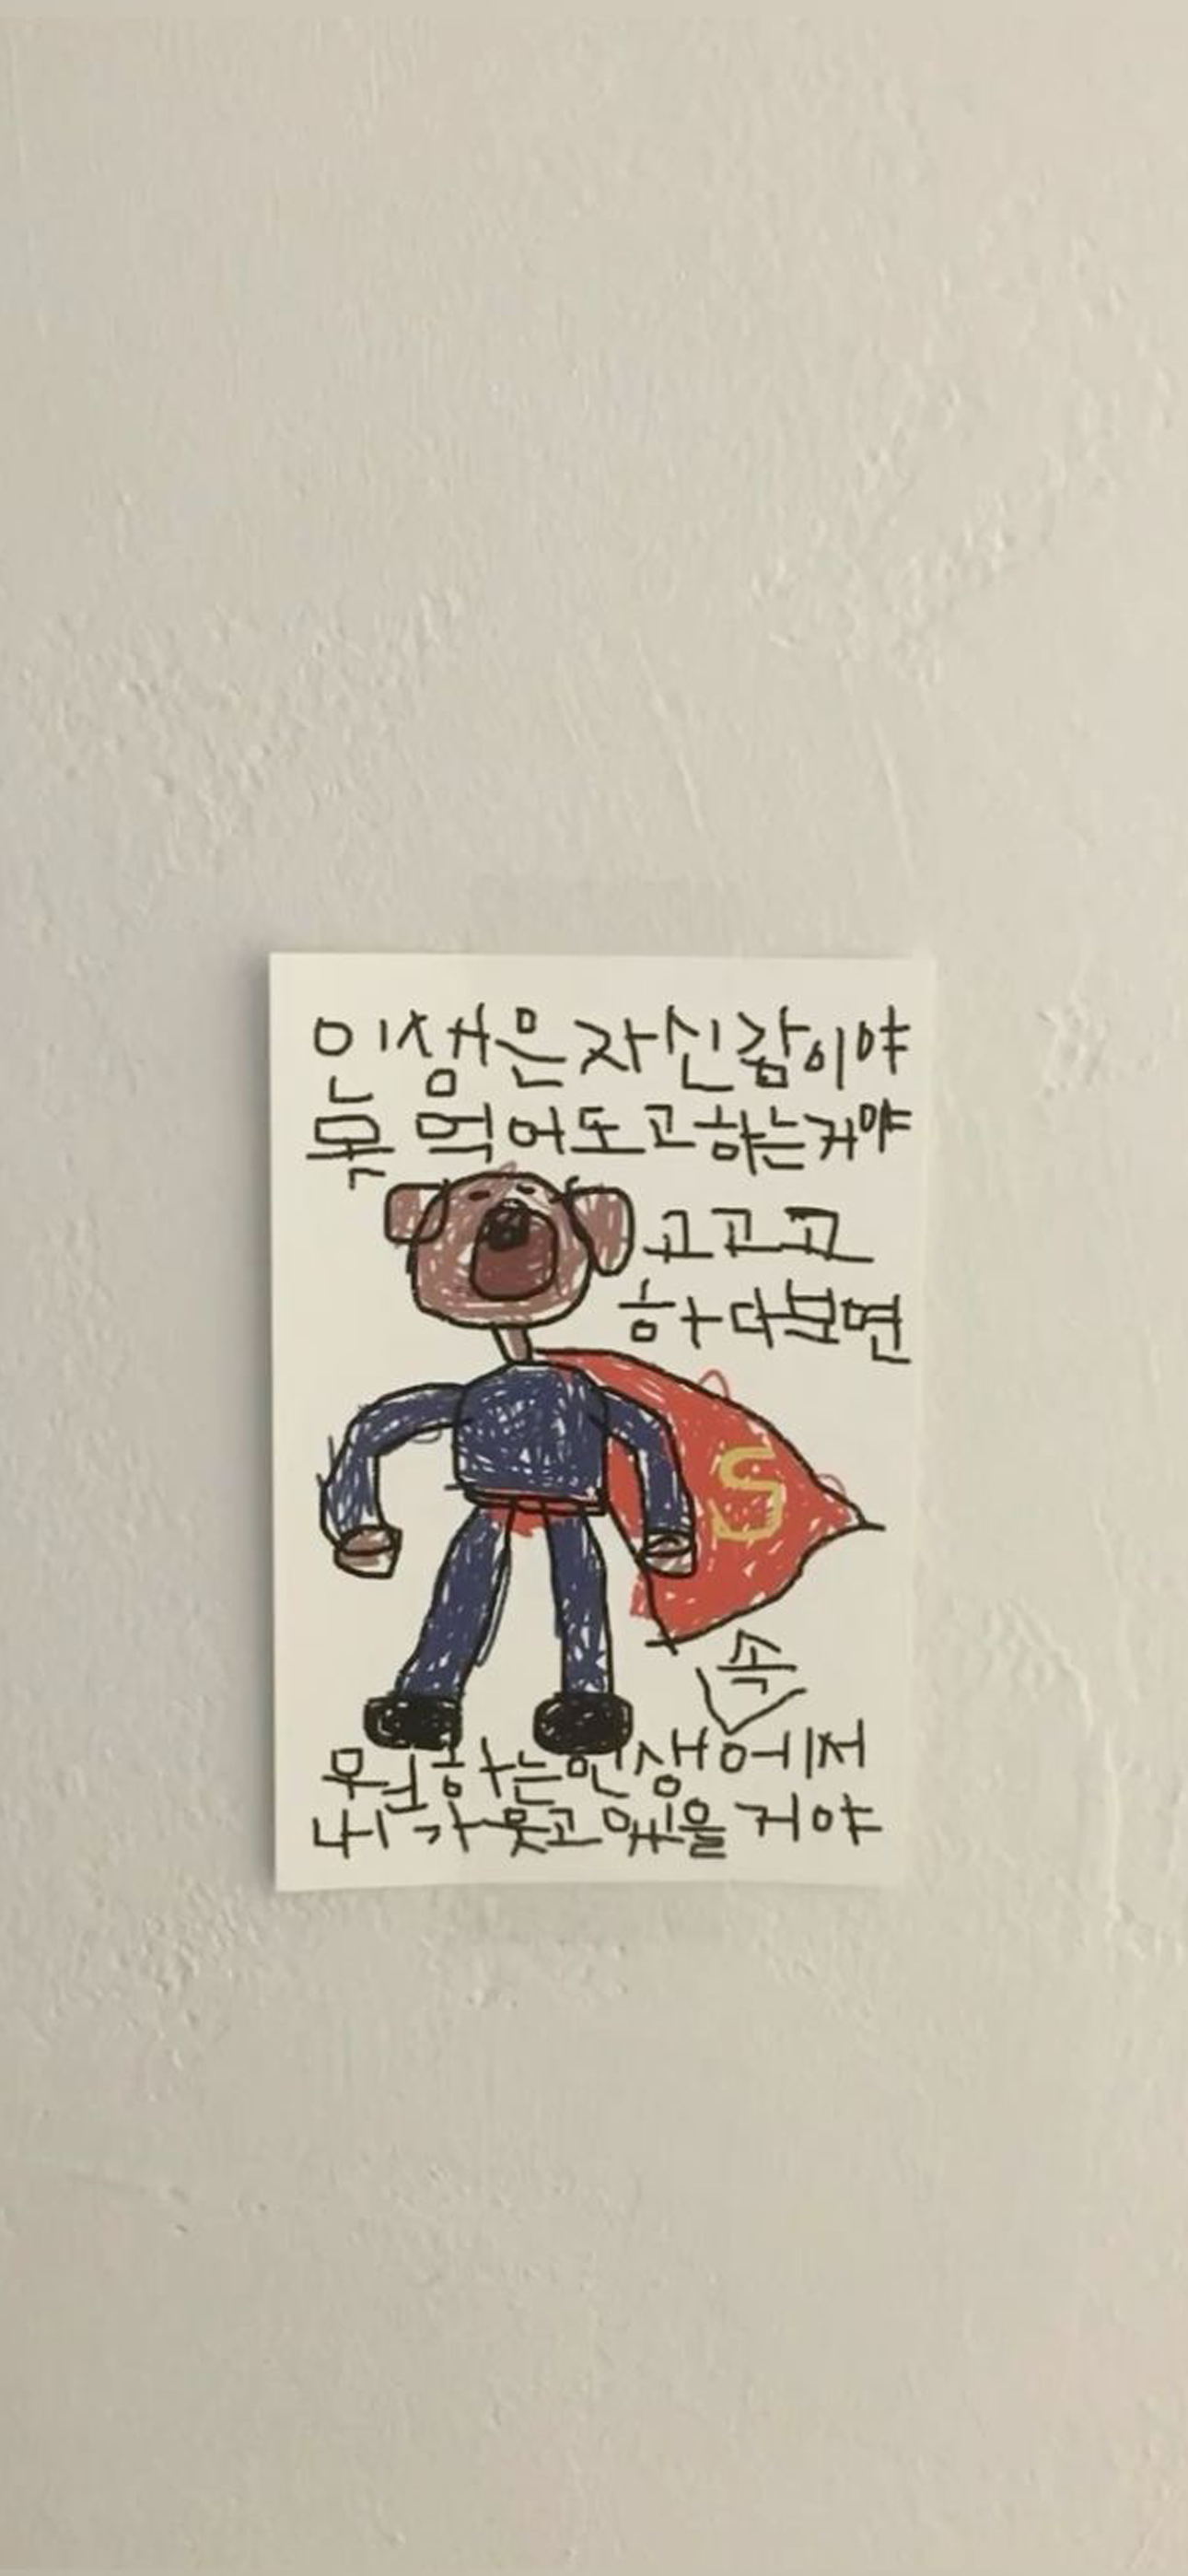 인생은 자신감이야
못 먹어도 고 하는 거야
고고고
하다보면
S
속
원하는 인생에 저
내가 웃고 있을 거야